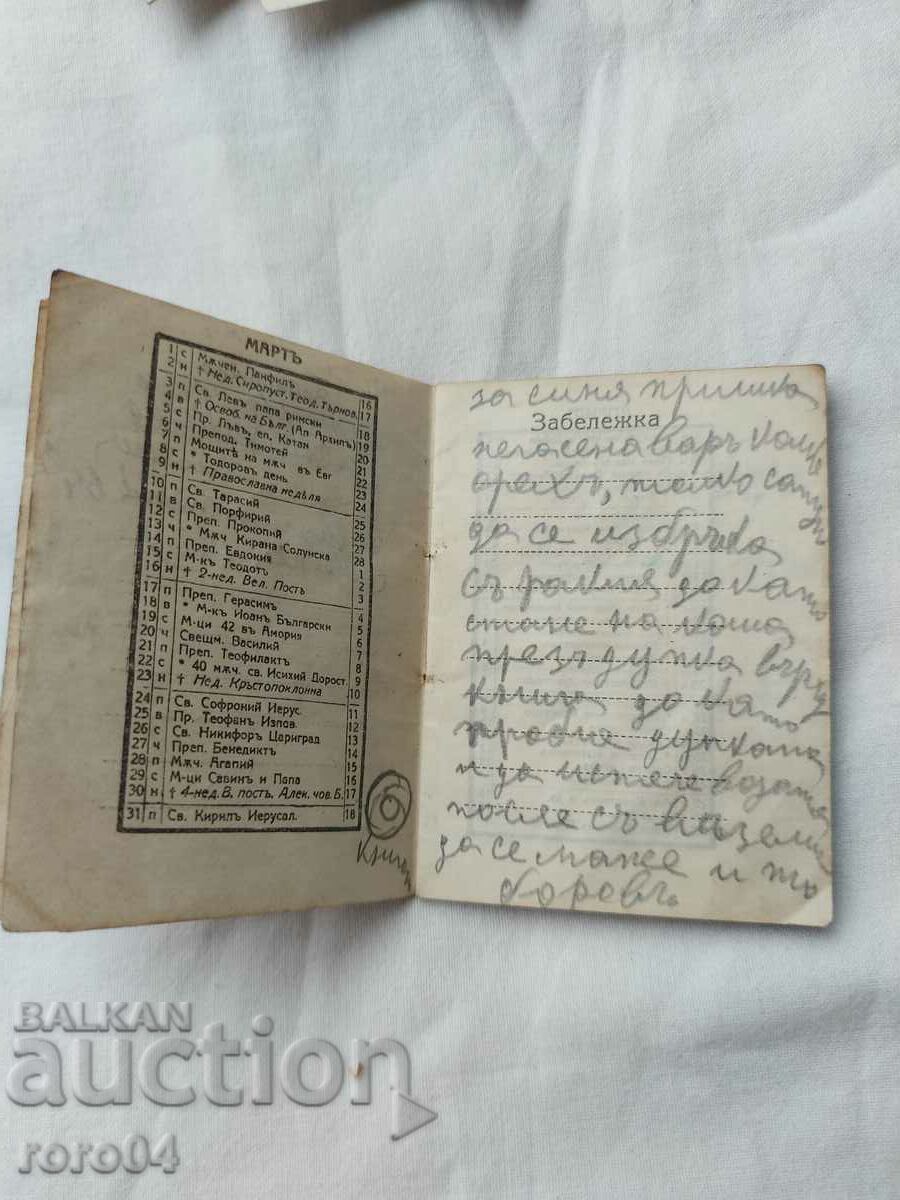 МАРТЪ
1 с Мѫчен. Панфилъ 16
2 н † Нед. Сиропуст. Теод. Търнов. 17
3 п Св. Левъ папа римски 18
4 в † Освоб. на Бълг. (Ап Архипъ) 19
5 с Пр. Лъвъ, еп. Катан 20
6 ч Препод. Тимотей 21
7 п Мощитѣ на мѫч въ Евг 22
8 с * Тодоровъ день 23
9 н † Православна недѣля 24
10 п Св. Тарасий 25
11 в Св. Порфирий 26
12 с Преп. Прокопий 27
13 ч * Мѫч Кирана Солунска 28
14 п Преп. Евдокия 1
15 с М-къ Теодотъ 2
16 н † 2-нед. Вел. Постъ 3
17 п Преп. Герасимъ 4
18 в * М-къ Иоанъ Български 5
19 с М-ци 42 въ Амория 6
20 ч Свещм. Василий 7
21 п Преп. Теофилактъ 8
22 с * 40 мѫч. св. Исихий Дорост. 9
23 н † Нед. Кръстопоклонна 10
24 п Св. Софроний Иерус. 11
25 в Пр. Теофанъ Изпов. 12
26 с Св. Никифоръ Цариград 13
27 ч Преп. Бенедиктъ 14
28 п Мѫч. Агапий 15
29 с М-ци Савинъ и Папа 16
30 н † 4-нед. В. постъ. Алек. чов. Б. 17
31 п Св. Кирилъ Иерусал. 18
книга
за синя пришка
Забележка
негасена варъ колц
орехъ, толко сапун
да се избърка
съ ракия да като
стане на каша
презъ дупка върху
книга да като
дупката
и да изтече водата
после съ вазелин
да се маже и то
боровъ.
BALKAN
auction
roro04